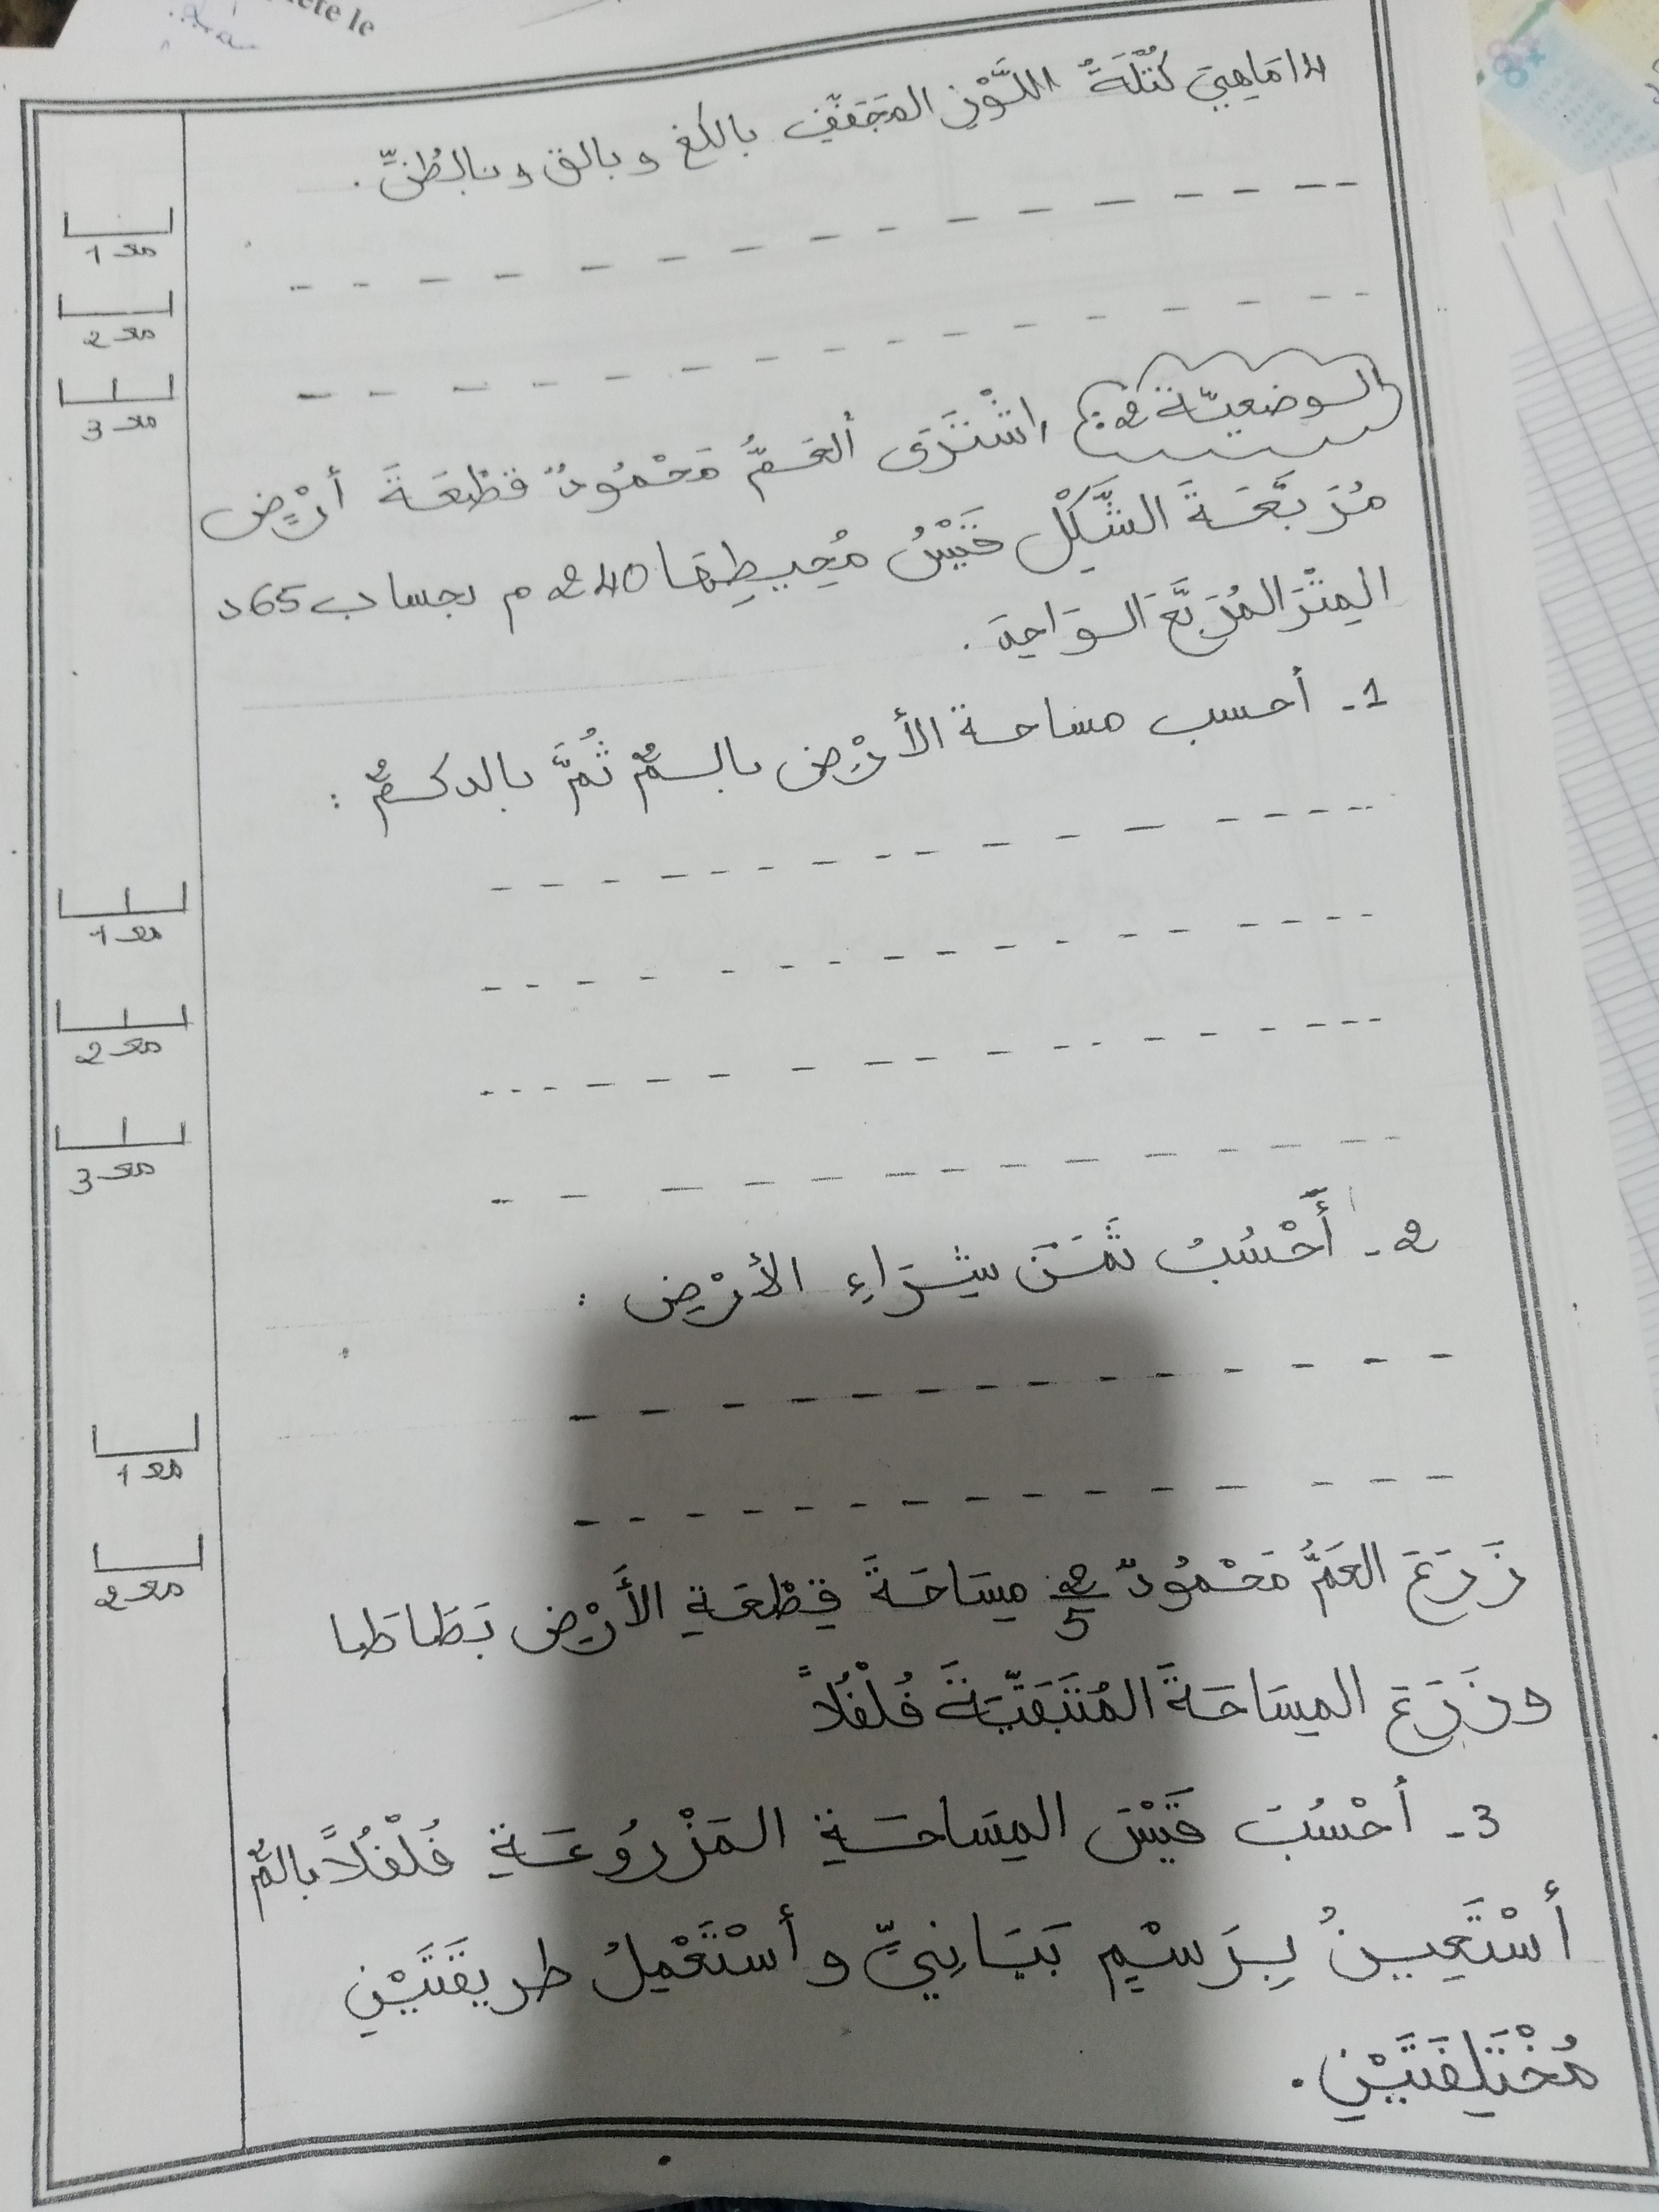 ète le
4/ مَاهِيَ كُتْلَةُ اللَّوْزِ المُجَفَّفِ بالكغ و بالق و بالطُنِّ.
مع 1
مع 2
مع 3
الوضعيّة 2: اشْتَرَى العَمُّ مَحْمُودٌ قِطْعَةَ أَرْضٍ
مُرَبَّعَةَ الشَّكْلِ قَيْسُ مُحِيطِهَا 240 م بحساب 65 د
المِتْرَ المُرَبَّعَ الوَاحِدَ.
1- أحسب مساحة الأَرْضِ بالـم² ثُمَّ بالدكم² :
مع 1
مع 2
مع 3
2- أَحْسُبُ ثَمَنَ شِرَاءِ الأَرْضِ :
مع 1
مع 2
زَرَعَ العَمُّ مَحْمُودٌ 2/5 مِسَاحَةَ قِطْعَةِ الأَرْضِ بَطَاطَا
وزَرَعَ المِسَاحَةَ المُتَبَقِّيَةَ فُلْفُلاً
3- أَحْسُبُ قَيْسَ المِسَاحَةِ المَزْرُوعَةِ فُلْفُلاً بالم²
أَسْتَعِينُ بِرَسْمٍ بَيَانِيٍّ و أَسْتَعْمِلُ طريقَتَيْنِ
مُخْتَلِفَتَيْنِ.